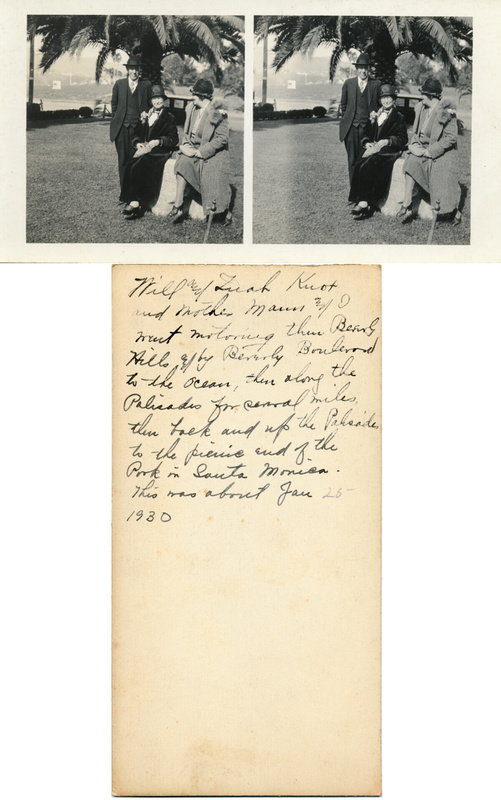 Will and Zuah Knox
and Mother Mann and I
went motoring thru Beverly
Hills and by Beverly Boulevard
to the ocean, then along the
Palisades for several miles,
then back and up the Palisades
to the picnic end of the
Park in Santa Monica.
This was about Jan 25
1930